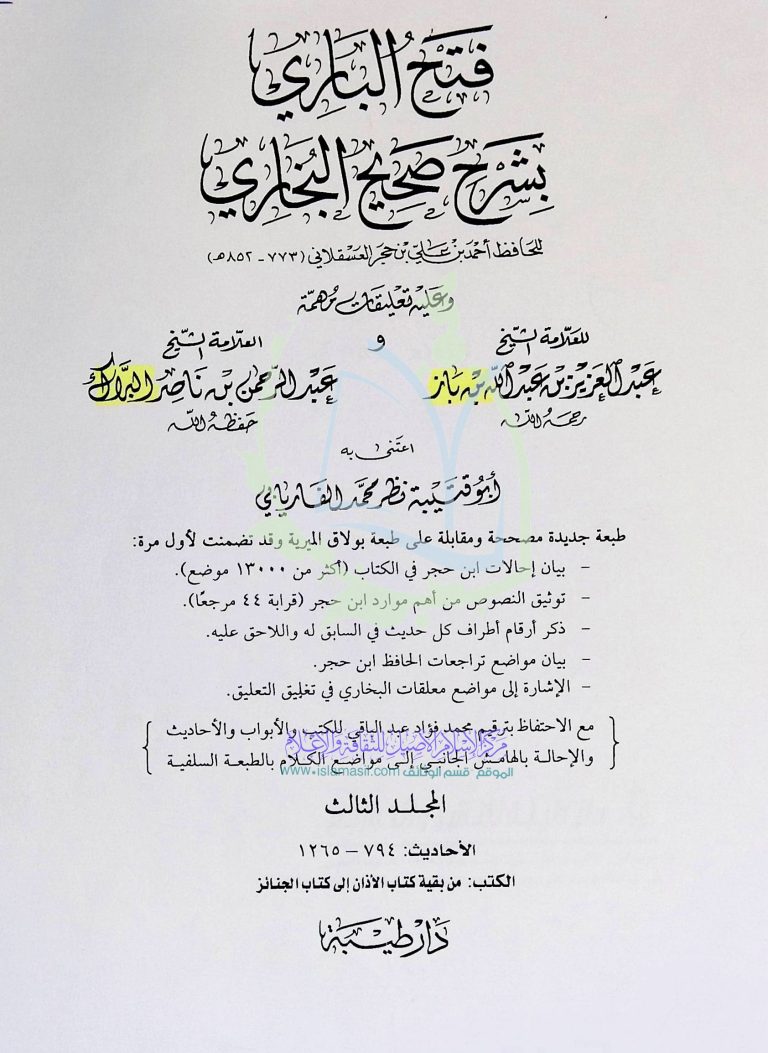 فتح الباري
بشرح صحيح البخاري
للحافظ أحمد بن علي بن حجر العسقلاني (٧٧٣ - ٨٥٢هـ)
وعليه تعليقات مهمة
للعلامة الشيخ
عبد العزيز بن عبد الله بن باز
رحمه الله
و
العلامة الشيخ
عبد الرحمن بن ناصر البراك
حفظه الله
اعتنى به
أبو قتيبة نظر محمد الفاريابي
طبعة جديدة مصححة ومقابلة على طبعة بولاق الميرية وقد تضمنت لأول مرة:
- بيان إحالات ابن حجر في الكتاب (أكثر من ١٣٠٠٠ موضع).
- توثيق النصوص من أهم موارد ابن حجر (قرابة ٤٤ مرجعًا).
- ذكر أرقام أطراف كل حديث في السابق له واللاحق عليه.
- بيان مواضع تراجعات الحافظ ابن حجر.
- الإشارة إلى مواضع معلقات البخاري في تغليق التعليق.
مع الاحتفاظ بترقيم محمد فؤاد عبد الباقي للكتب والأبواب والأحاديث
مركز الإسلام الأصيل للثقافة والإعلام
والإحالة بالهامش الجانبي إلى مواضع الكلام بالطبعة السلفية
الموقع قسم الوثائق www.islamasil.com
المجلد الثالث
الأحاديث: ٧٩٤ - ١٢٦٥
الكتب: من بقية كتاب الأذان إلى كتاب الجنائز
دار طيبة